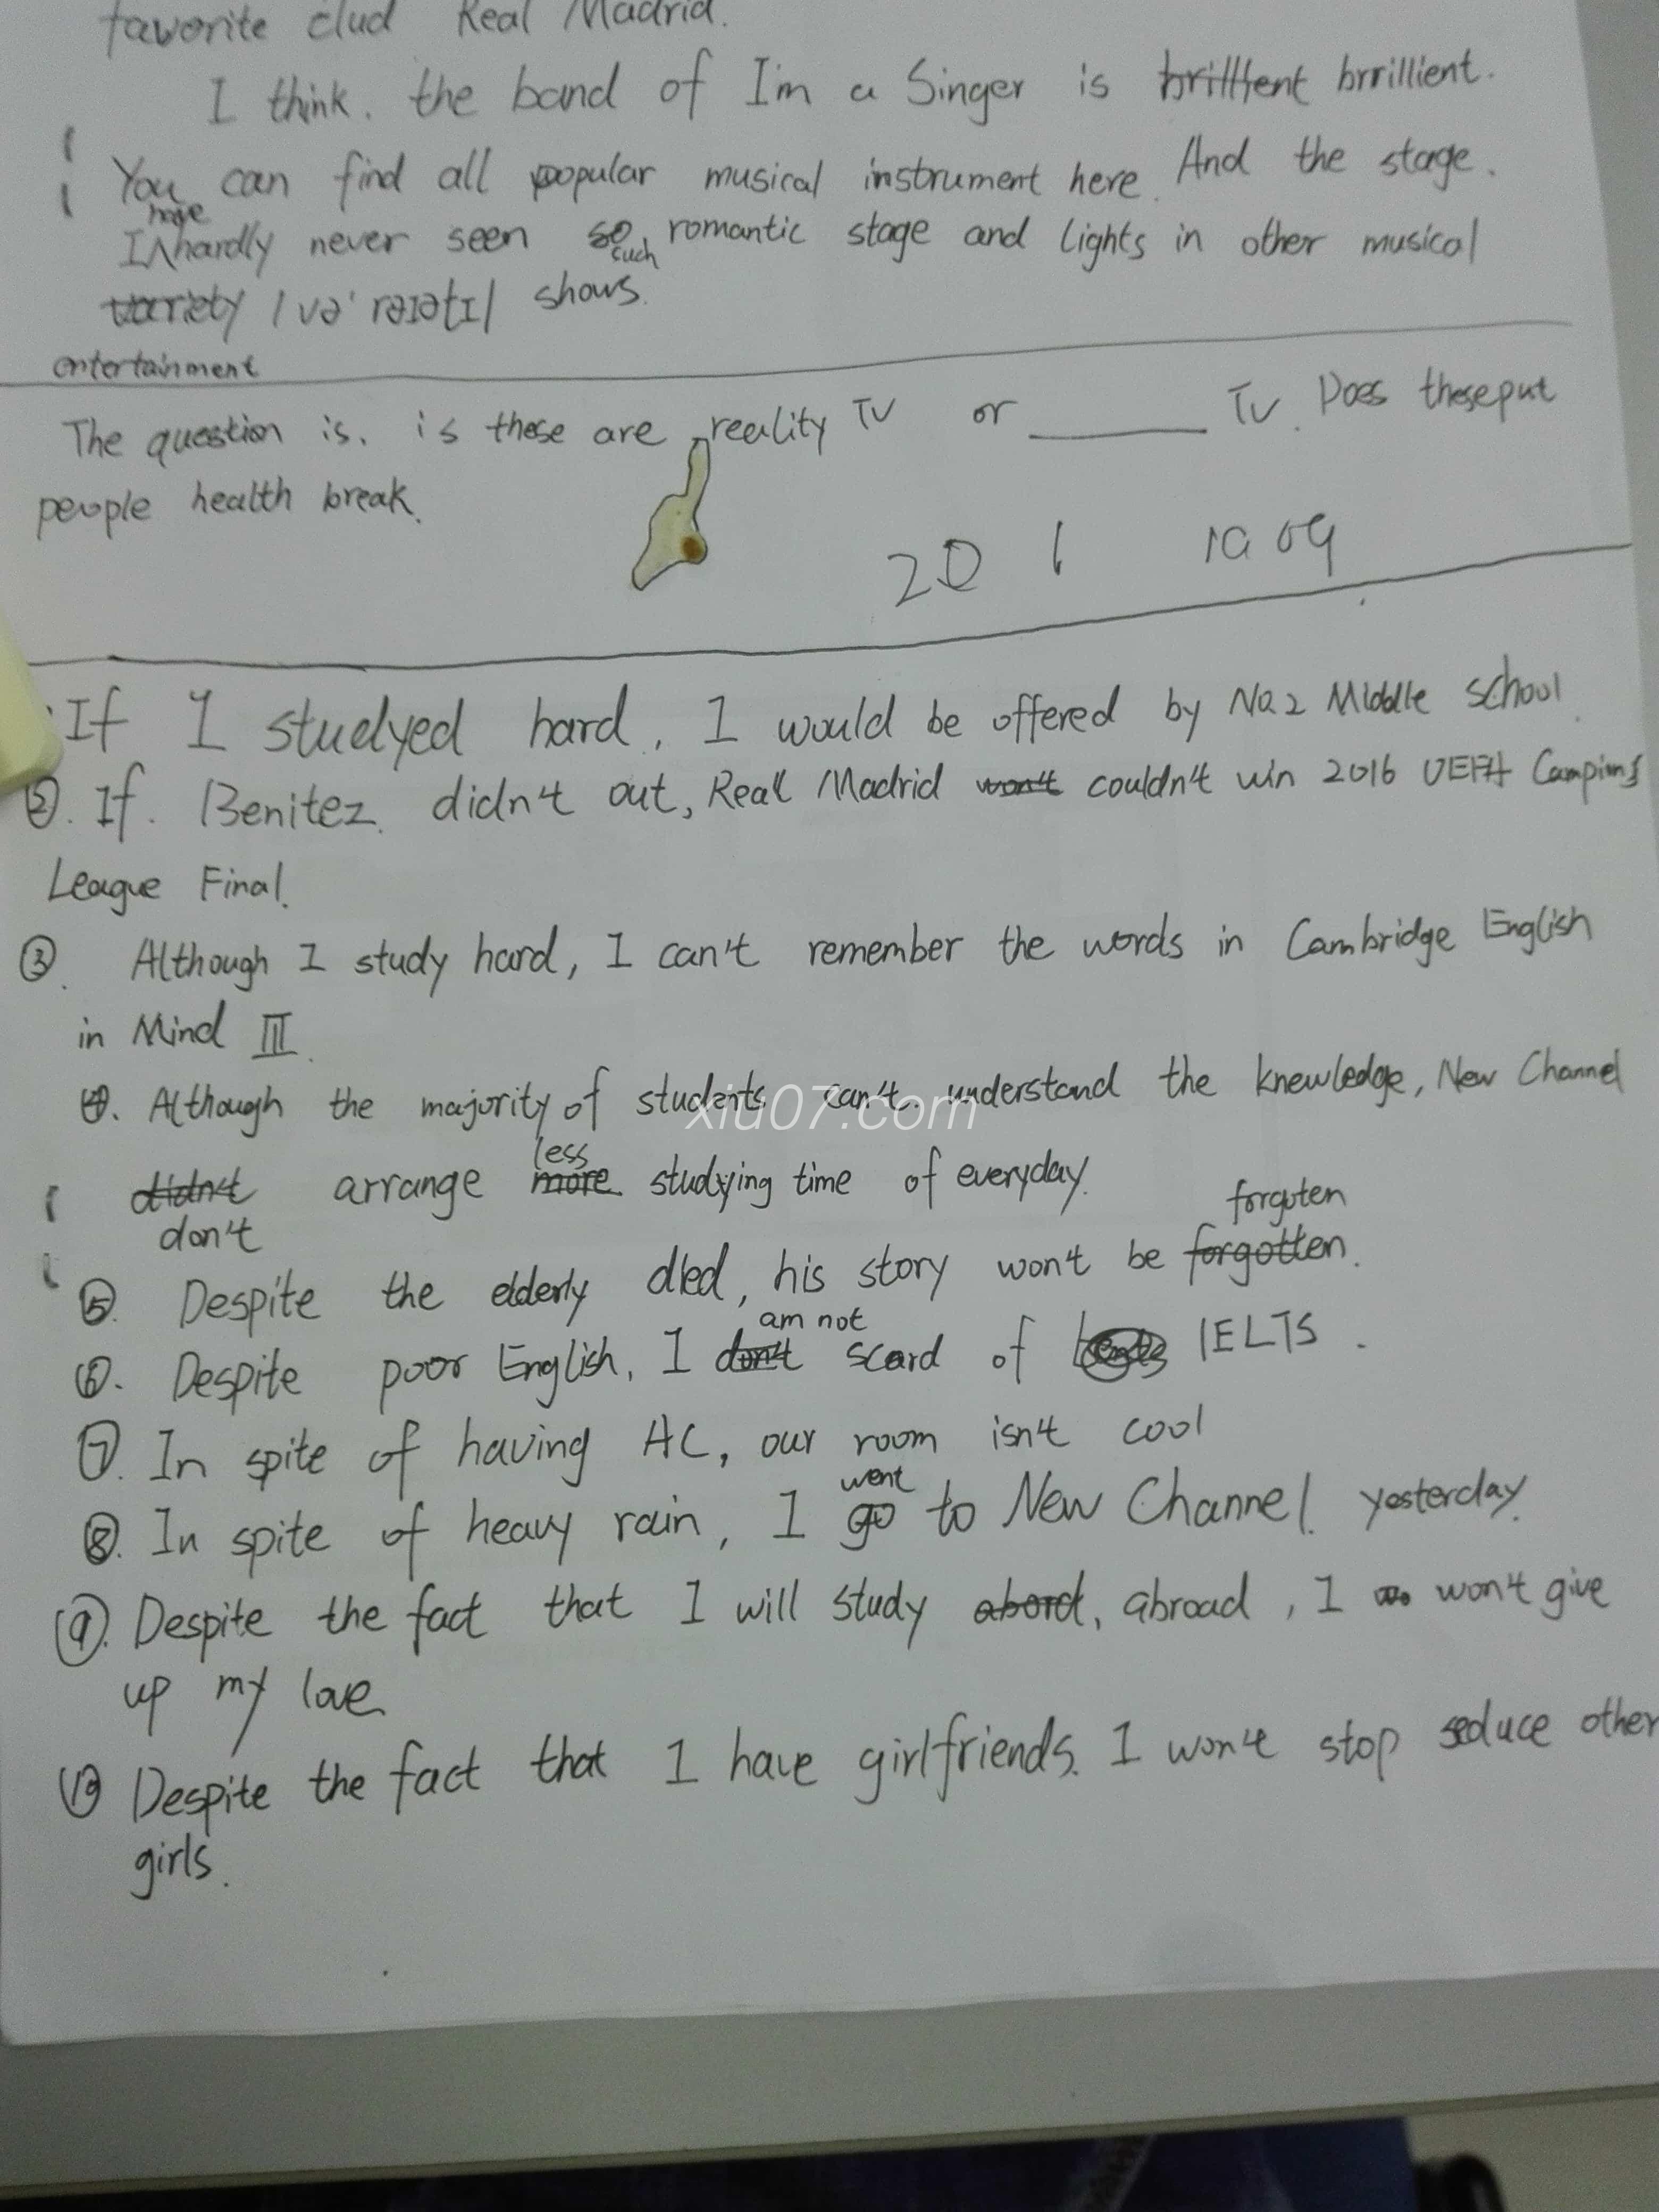 favorite clud Real Madrid.
I think. the band of I'm a Singer is brillient brrillient.
You can find all popular musical instrument here. And the stage.
have
I hardly never seen so such romantic stage and lights in other musical
variety /və'rəɪətɪ/ shows.
entertainment
The question is. is these are reality TV or ______ TV. Does these put
people health break.
20 1 10 09
If I studyed hard, I would be offered by No.2 Middle school.
②. If. Benitez. didn't out, Real Madrid won't couldn't win 2016 UEFA Campions
League Final.
③. Although I study hard, I can't remember the words in Cambridge English
in Mind III.
④. Although the majority of students can't. understand the knewledge, New Channel
xiu07.com
less
didn't arrange more studying time of everyday.
don't
forgoten
⑤. Despite the elderly died, his story won't be forgotten.
am not
⑥. Despite poor English, I don't scard of IELTS.
⑦. In spite of having AC, our room isn't cool
went
⑧. In spite of heavy rain, I go to New Channel. yesterday.
⑨. Despite the fact that I will study abord, abroad, I won't give
up my love
⑩ Despite the fact that I have girlfriends. I won't stop seduce other
girls.